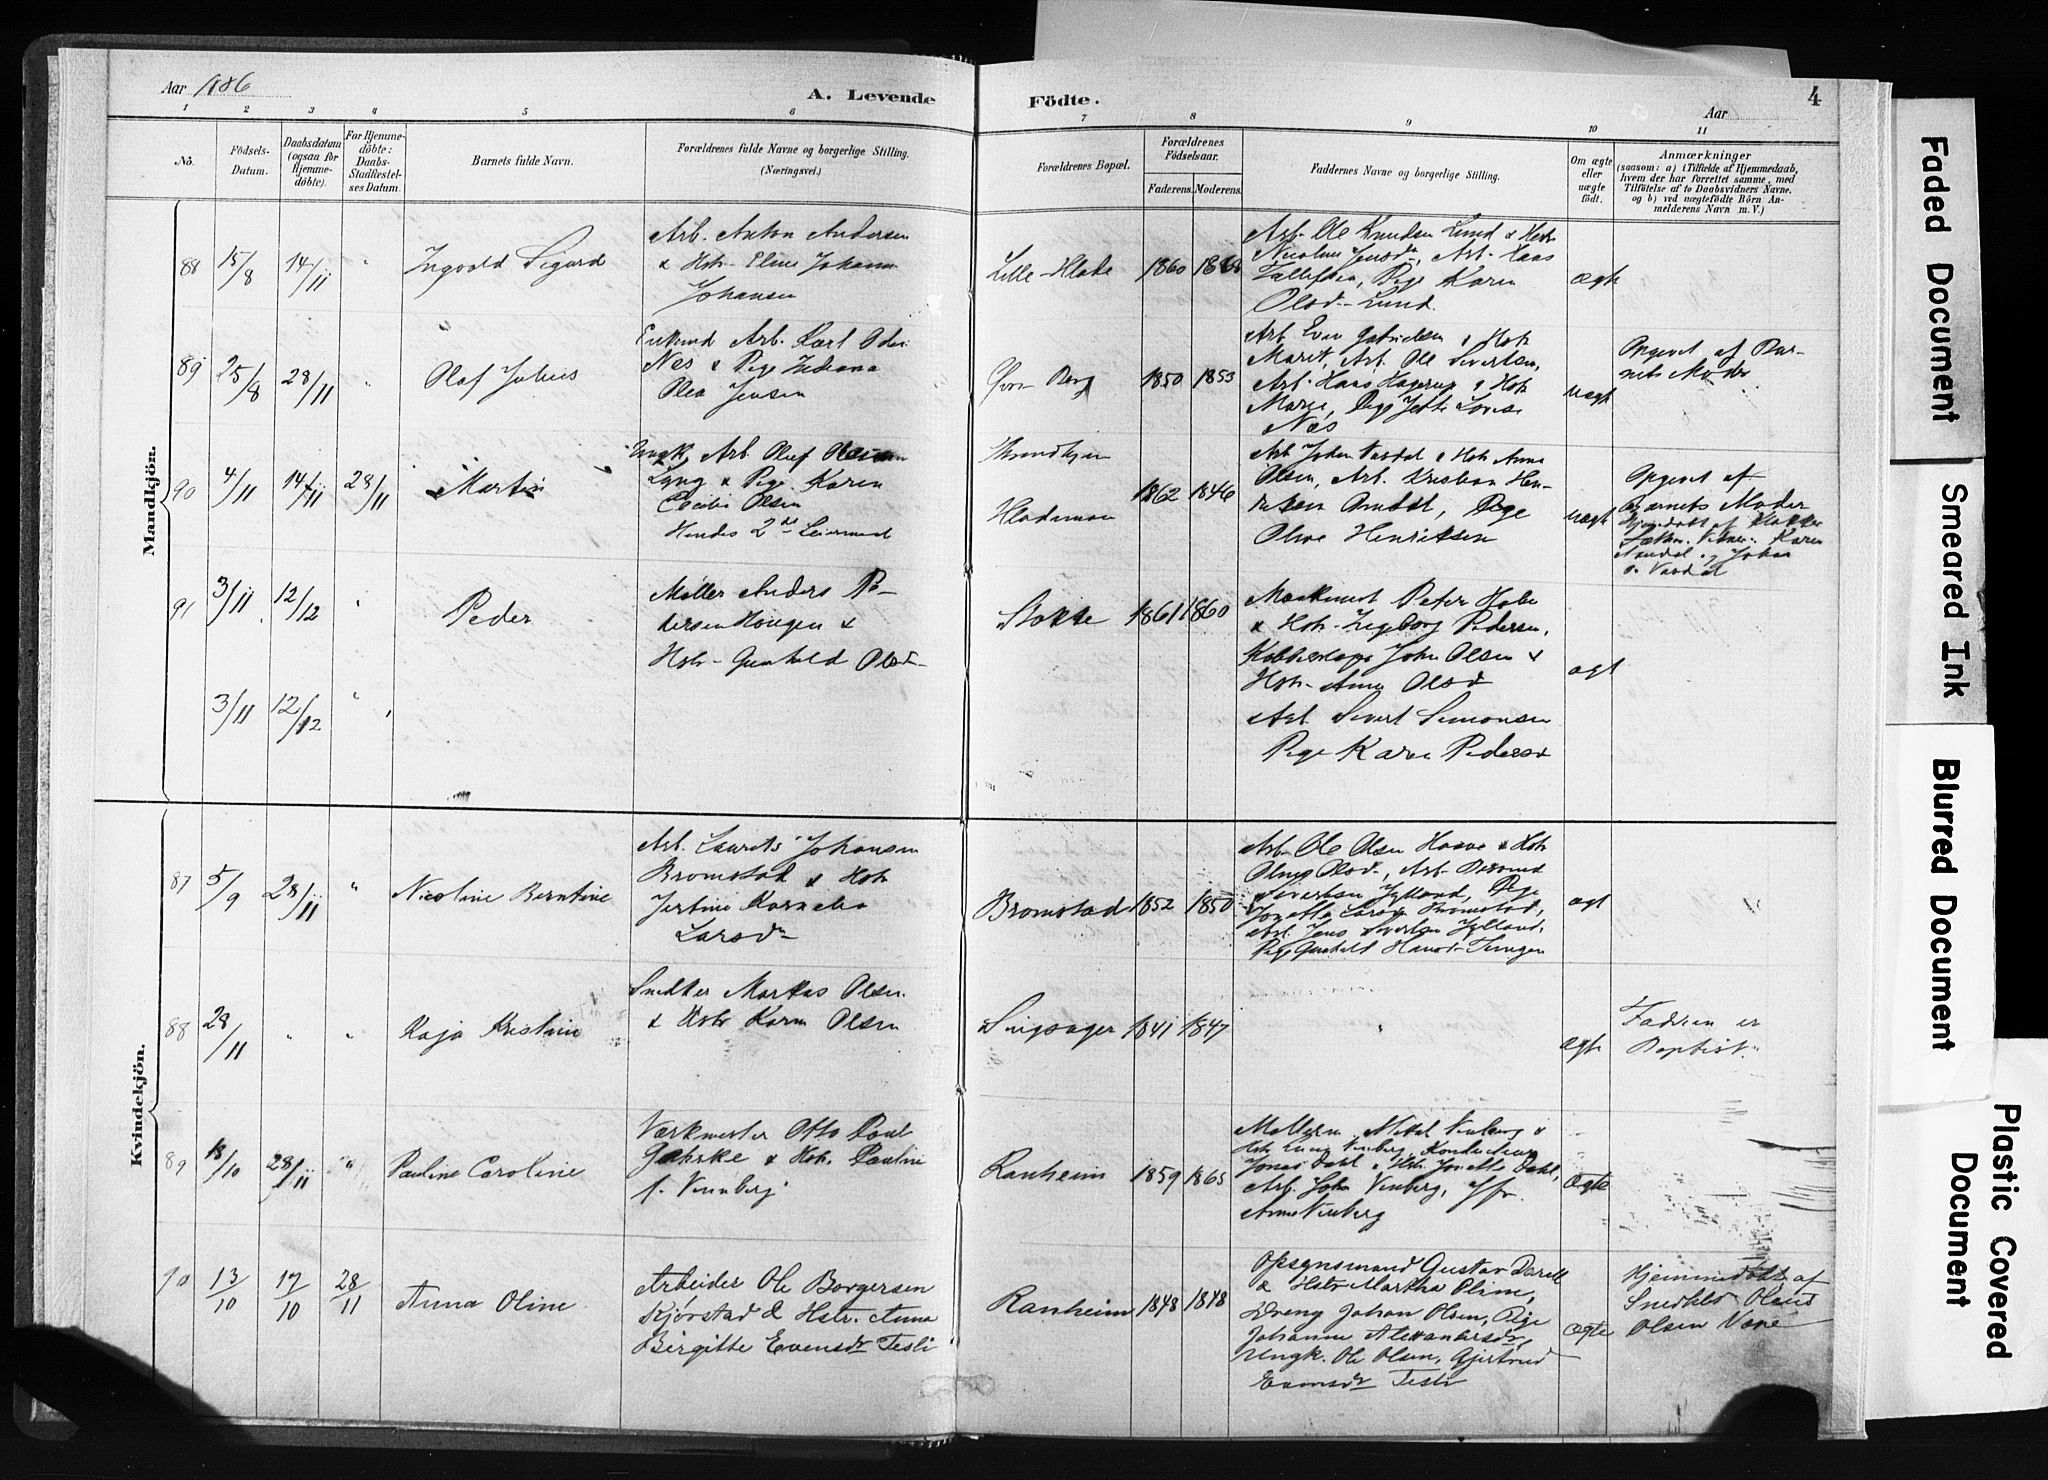 Aar 1886
A. Levende Födte.
Aar
4
1 2 3 4 5 6 7 8 9 10 11
No.
Födsels-
Datum.
Daabsdatum
(ogsaa for
Hjemme-
döbte).
For Hjemme-
döbte:
Daabs-
Stadfestel-
ses Datum.
Barnets fulde Navn.
Forældrenes fulde Navne og borgerlige Stilling.
(Næringsvei.)
Forældrenes Bopæl.
Forældrenes
Födselsaar.
Faderens. Moderens.
Faddernes Navne og borgerlige Stilling.
Om ægte
eller
uægte
födt.
Anmærkninger
(saasom: a) i Tilfælde af Hjemmedaab,
hvem der har forrettet samme, med
Tilföielse af to Daabsvidners Navne.
og b) ved uægtefödte Börn An-
melderens Navn m. V.)
Mandkjön.
88 15/8 14/11 " Ingvald Sigurd
Arb. Anton Andersen
& Hstr. Eline Johanna
Johansen
Lille-Hlade 1860
Arb. Ole Knudsen Lund & Hstr
Nicoline Jensdr, Arb. Haas
Pige Karen
Olsd. Lund.
ægte
89 25/8 28/11 " Olaf Julius
Enkemd Arb. Karl Odin
Næs & Pige Indiana
Olea Jensen
Øvre Berg 1850 1853
Arb Even Gabrielsen & Hstr
Marit, Arb. Ole Sivertsen,
Arb. Haas Hagerup & Hstr
Marie, Pige Jette Lovise
Næs
uægt
Opgivet af Bar-
nets Moder
90 4/11 14/11 28/11 Martin
Ungk. Arb Oluf
Lyng & Pige Karen
Cecilie Olsen
Hendes 2det Leiermaal
Throndhjem
Hlademoen
1862 1846
Arb John Vasdal & Hstr Anna
Olsen, Arb. Kristian Hen-
riksen Pige
Oline Henriksen
uægt
Opgivet af
Barnets Moder
Hjemdøbt af Klokker
Karen
og Johan
91 3/11 12/12 " Peder
Møller Anders Pe-
dersen Hougen &
Hstr. Gunhild Olsd.
Stokke 1861 1860
Peter
& Hstr. Ingeborg Pedersen,
John Olsen &
Hstr. Anne Olsd
Arb. Sivert Simonsen
Pige Karen Pedersd
ægt
3/11 12/12 "
Kvindekjön.
87 5/9 28/11 " Nicoline Berntine
Arb. Laurits Johansen
Bromstad & Hstr
Jertine Kornelia
Larsdr
Bromstad 1852 1850
Arb. Ole Olsen Haave & Hstr
Olsd., Arb.
Sivertsen Jylland, Pige
Jonette Larsd Bromstad,
Arb. Jens Sivertsen Jylland,
Pige Gunhild Hansd.
ægt
88 28/11 " " Kaja Kristine
Snedker Markus Olsen
& Hstr Karen Olsen
Singsager 1841 1847
"
ægte
Faderen er
Baptist.
89 18/10 28/11 " Pauline Caroline
Værkmester Otto Paul
Gahrke & Hstr. Pauline
f. Vennberg
Ranheim 1859 1865
Møller
Jonas Dahl & Hstr Jonette Dahl,
Arb. John Venberg, Jfr.
Anna Venberg
Ægte
90 13/10 17/10 28/11 Anna Oline
Arbeider Ole Borgersen
Kjørstad & Hstr. Anna
Birgitte Evensdr Tesli
Ranheim 1848 1848
Opsynsmand Gustav
& Hstr Martha Oline,
Dreng Johan Olsen, Pige
Johanna Alexandersdr,
Ungk. Ole Olsen, Gjertrud
Evensdr Tesli
Ægte
Hjemmedøbt af
Snedker
Olsen
Faded Document
Smeared Ink
Blurred Document
Plastic Covered
Document